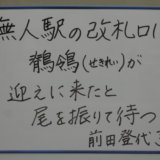 無人駅の改札口
鶺鴒(せきれい)が
迎えに来たと
尾を振りて待つ
前田登代子